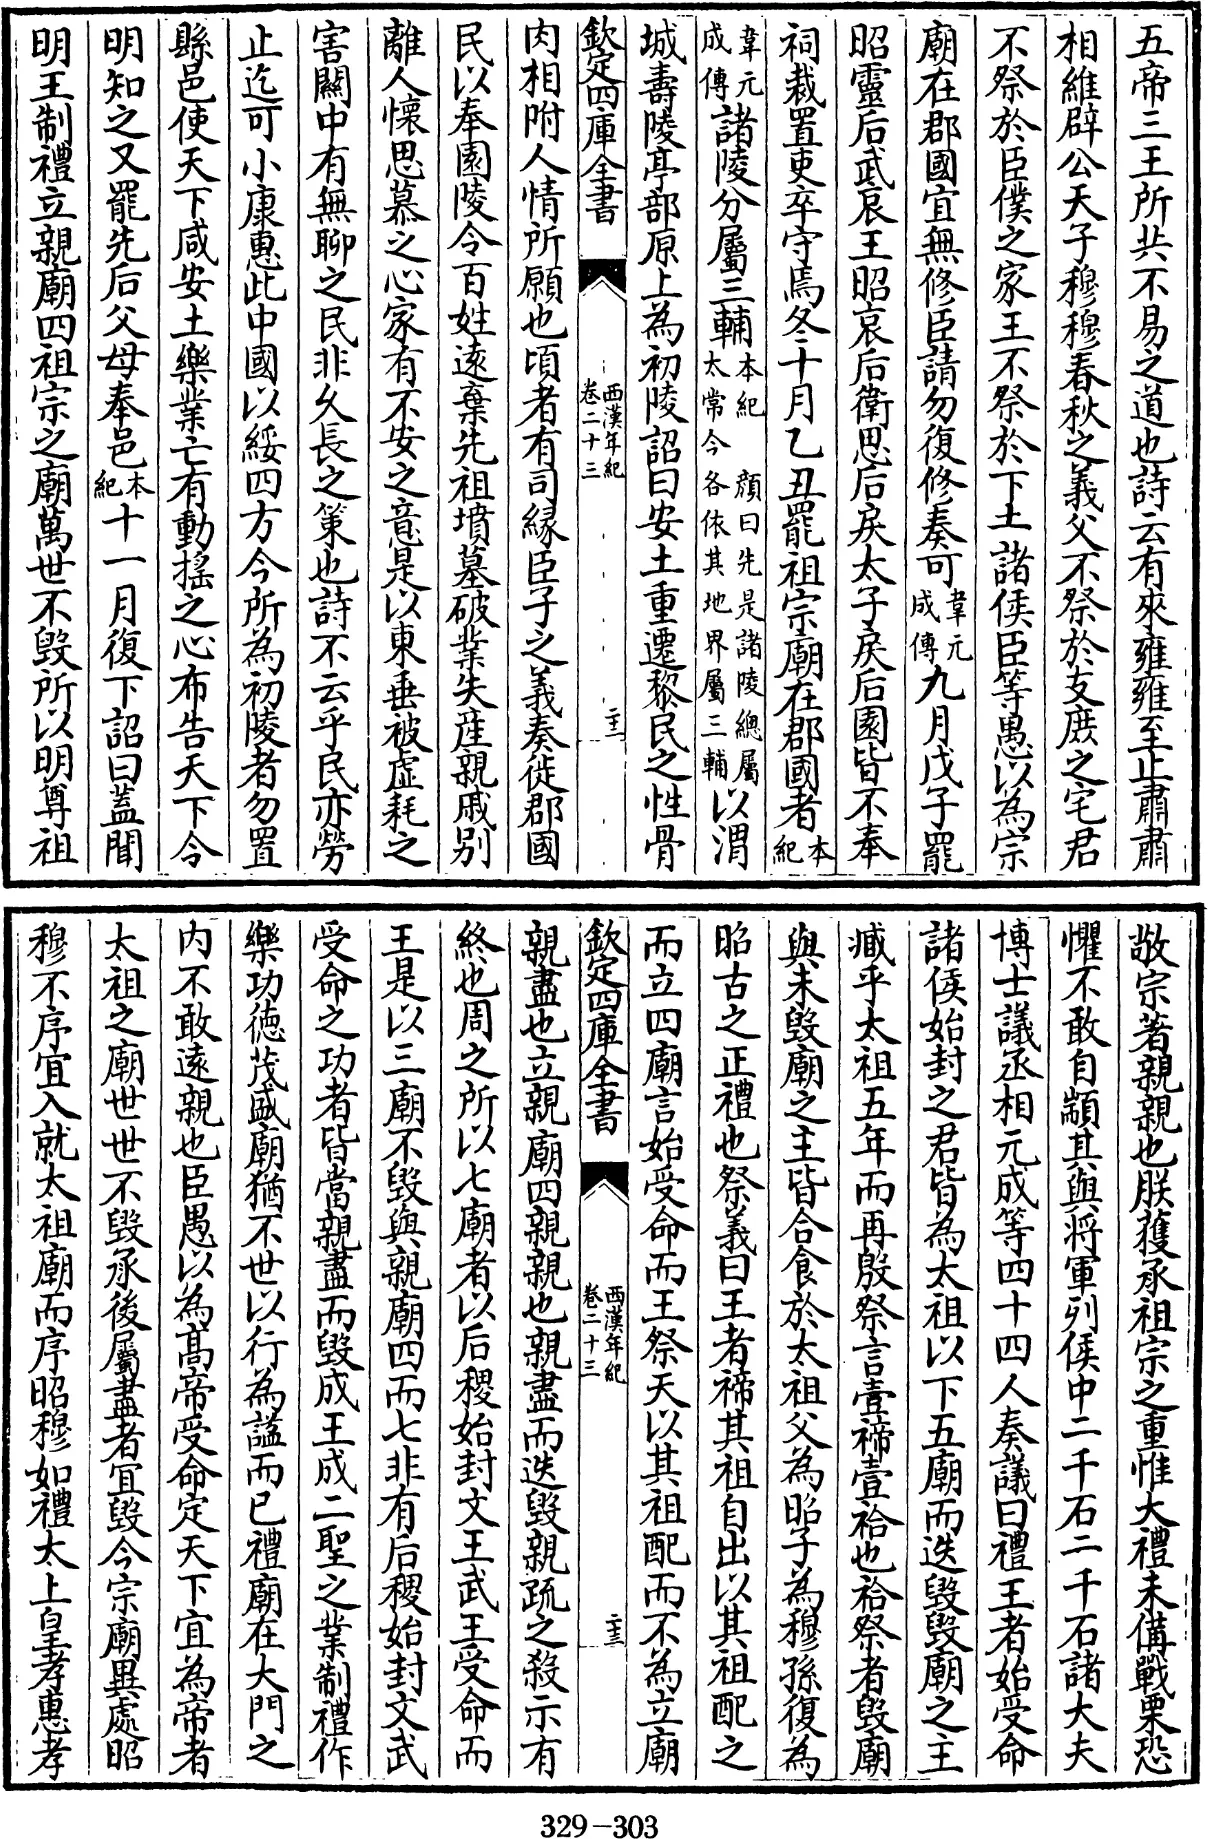 五帝三王所共不易之道也詩云有來雍雍至止肅肅
相維辟公天子穆穆春秋之義父不祭於支庶之宅君
不祭於臣僕之家王不祭於下土諸侯臣等愚以為宗
廟在郡國宜無修臣請勿復修奏可韋元成傳九月戊子罷
昭靈后武哀王昭哀后衛思后戾太子戾后園皆不奉
祠裁置吏卒守焉冬十月乙丑罷祖宗廟在郡國者本紀
韋元成傳諸陵分屬三輔本紀 顏曰先是諸陵總屬太常今各依其地界屬三輔以渭
城壽陵亭部原上為初陵詔曰安土重遷黎民之性骨
欽定四庫全書
西漢年紀
卷二十三
二十二
肉相附人情所願也頃者有司縁臣子之義奏徙郡國
民以奉園陵令百姓逺棄先祖墳墓破業失産親戚别
離人懷思慕之心家有不安之意是以東垂被虛耗之
害關中有無聊之民非久長之策也詩不云乎民亦勞
止迄可小康惠此中國以綏四方今所為初陵者勿置
縣邑使天下咸安土樂業亡有動搖之心布告天下令
明知之又罷先后父母奉邑本紀十一月復下詔曰蓋聞
明王制禮立親廟四祖宗之廟萬世不毀所以明尊祖
敬宗著親親也朕獲承祖宗之重惟大禮未備戰栗恐
懼不敢自顓其與將軍列侯中二千石二千石諸大夫
博士議丞相元成等四十四人奏議曰禮王者始受命
諸侯始封之君皆為太祖以下五廟而迭毀毀廟之主
臧乎太祖五年而再殷祭言壹禘壹祫也祫祭者毀廟
與未毀廟之主皆合食於太祖父為昭子為穆孫復為
昭古之正禮也祭義曰王者禘其祖自出以其祖配之
而立四廟言始受命而王祭天以其祖配而不為立廟
欽定四庫全書
西漢年紀
卷二十三
二十三
親盡也立親廟四親親也親盡而迭毀親疏之殺示有
終也周之所以七廟者以后稷始封文王武王受命而
王是以三廟不毀與親廟四而七非有后稷始封文武
受命之功者皆當親盡而毀成王成二聖之業制禮作
樂功徳茂盛廟猶不世以行為諡而已禮廟在大門之
内不敢逺親也臣愚以為髙帝受命定天下宜為帝者
太祖之廟世世不毀承後屬盡者宜毀今宗廟異處昭
穆不序宜入就太祖廟而序昭穆如禮太上皇孝惠孝
329-303